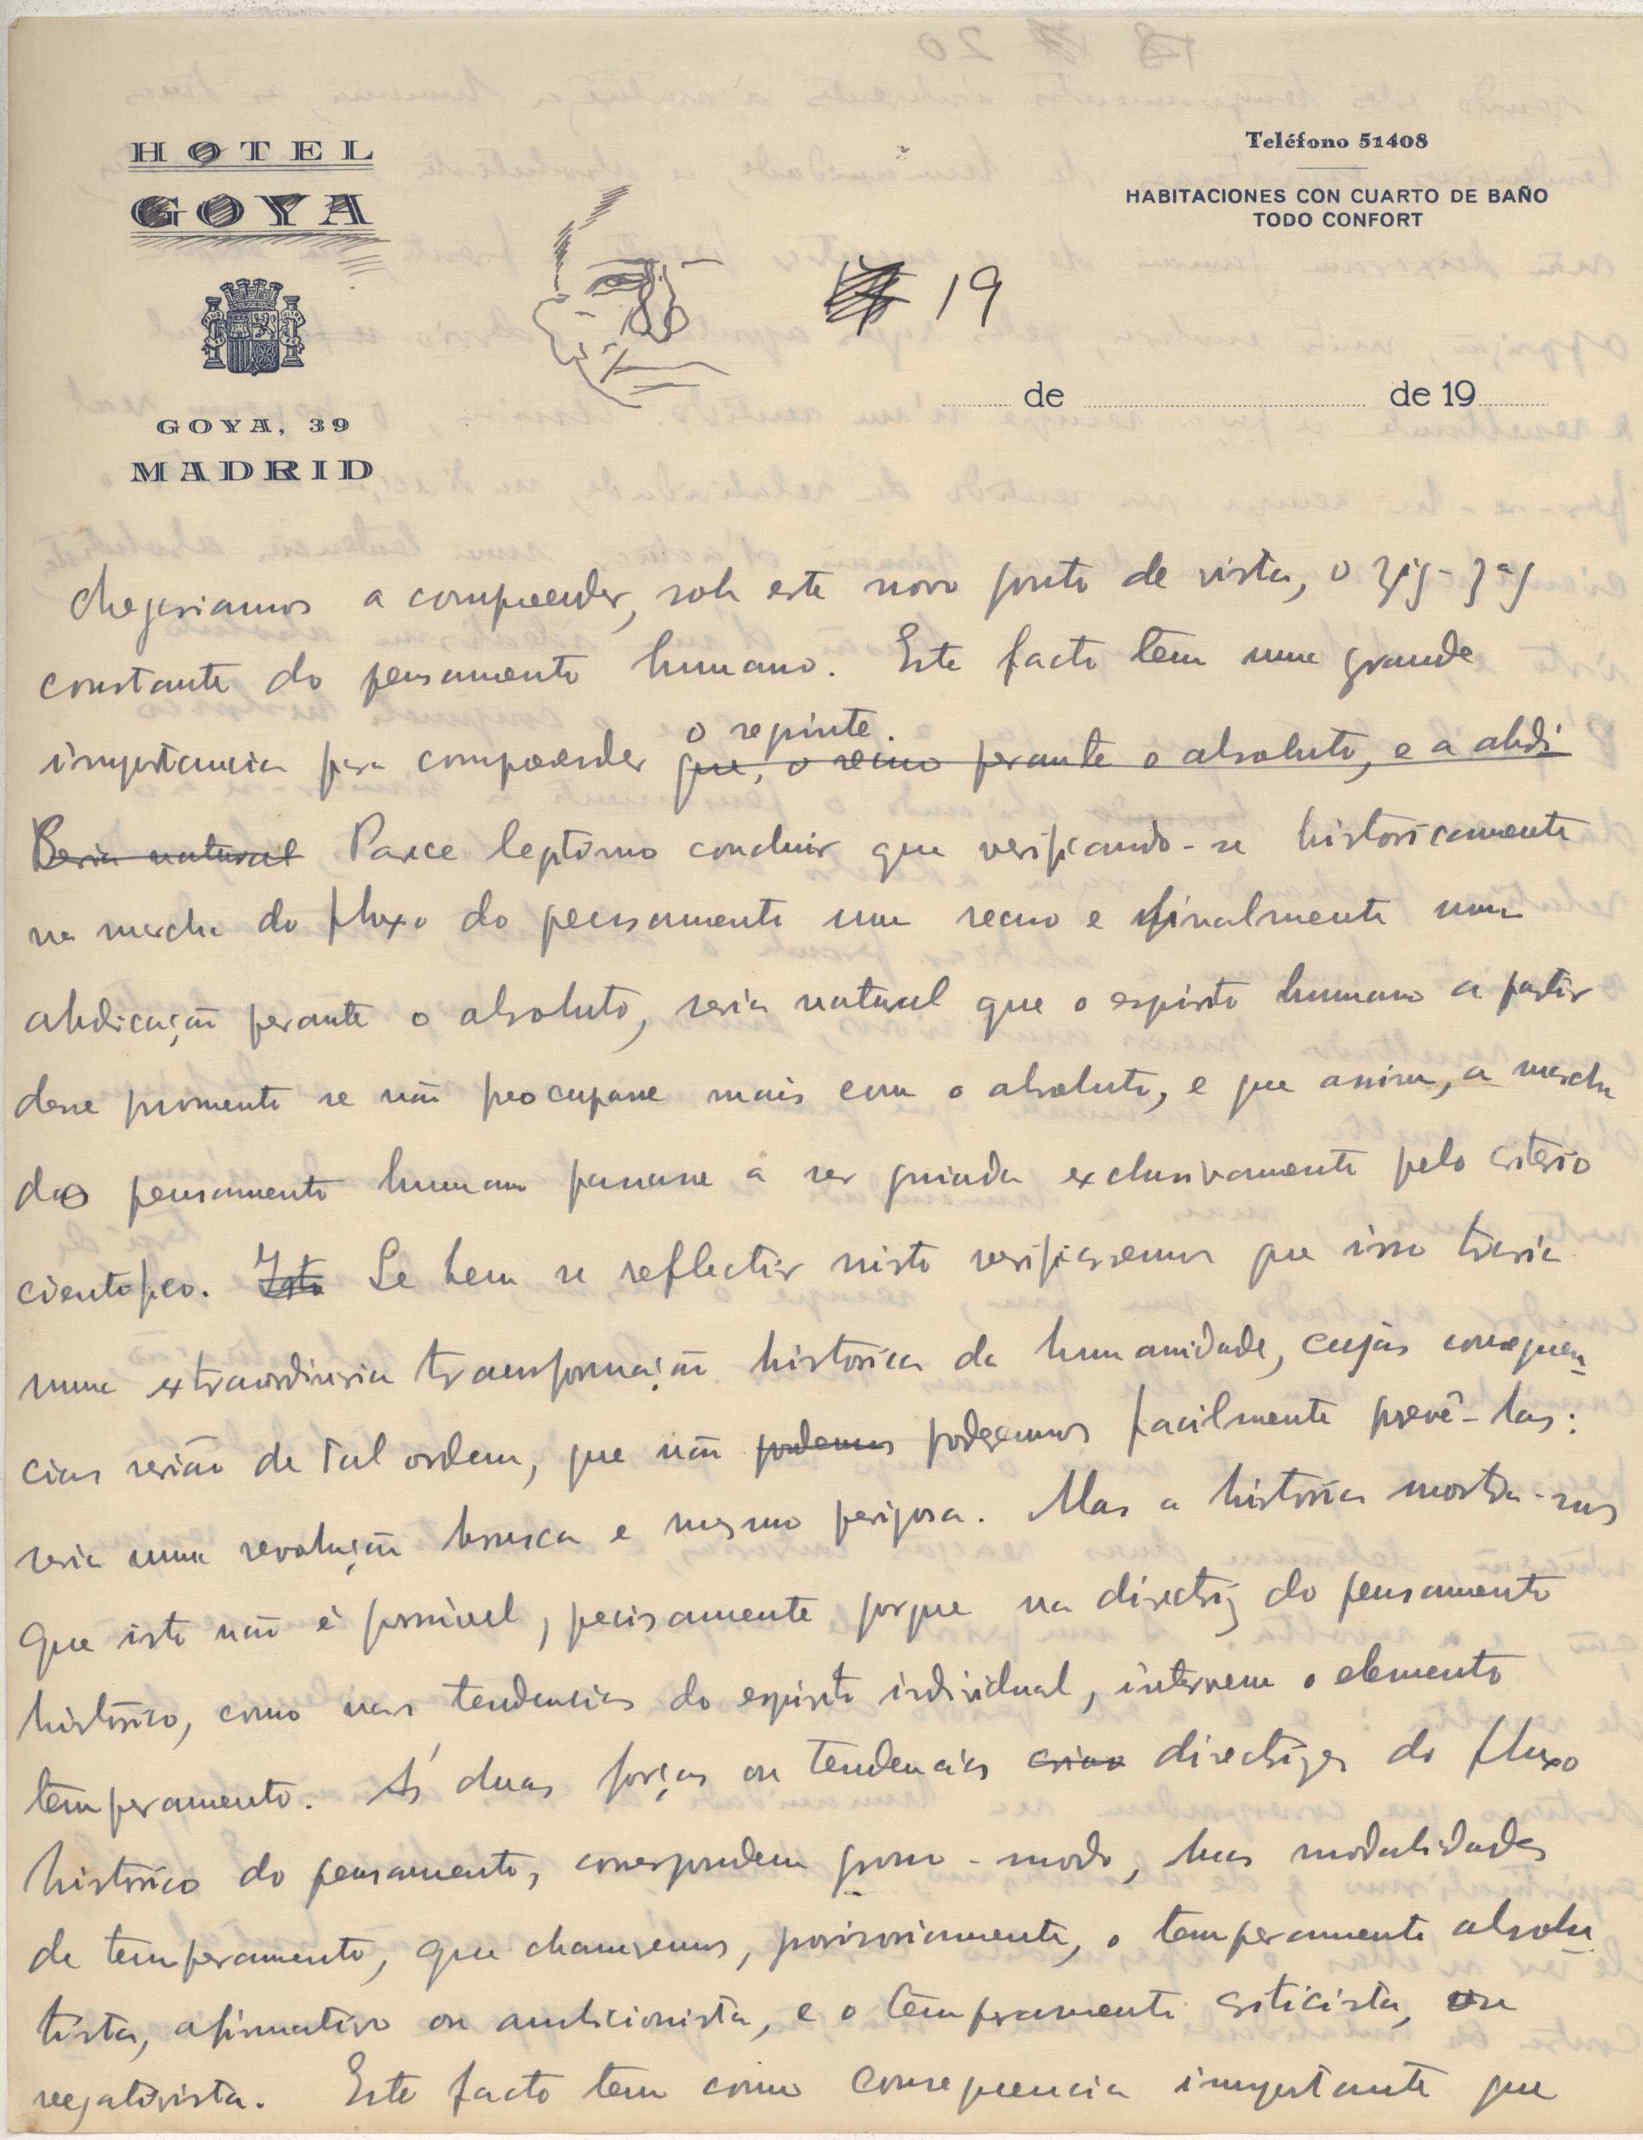 HOTEL
GOYA
GOYA, 39
MADRID
Teléfono 51408
HABITACIONES CON CUARTO DE BAÑO
TODO CONFORT
19
de de 19
chegariamos a compreender, sob este novo ponto de vista, o zig-zag
constante do pensamento humano. Este facto tem uma grande
importancia para compreender que, o recuo perante o absoluto, e a abdi
o seguinte.
Seria natural Parece legitimo concluir que verificando-se historicamente
na marcha do fluxo do pensamento um recuo e finalmente uma
abdicação perante o absoluto, seria natural que o espirito humano a partir
desse momento se não preocupasse mais com o absoluto, e que assim, a marcha
do pensamento humano passasse a ser guiada exclusivamente pelo criterio
cientifico. Isto Se bem se reflectir nisto verificaremos que isso traria
uma extraordinaria transformação historica da humanidade, cujas consequen-
cias serião de tal ordem, que não podemos poderemos facilmente prevê-las:
seria uma revolução brusca e mesmo perigosa. Mas a historia mostra-nos
que isto não é possivel, precisamente porque na directriz do pensamento
historico, como nas tendencias do espirito individual, intervem o elemento
temperamento. Ás duas forças ou tendencias criao directrizes do fluxo
historico do pensamento, correspondem grosso-modo, duas modalidades
de temperamento, que chamaremos, provisoriamente, o temperamento absolu
tista, afirmativo ou ambicionista, e o temperamento criticista, ou
negativista. Este facto tem como consequencia importante que